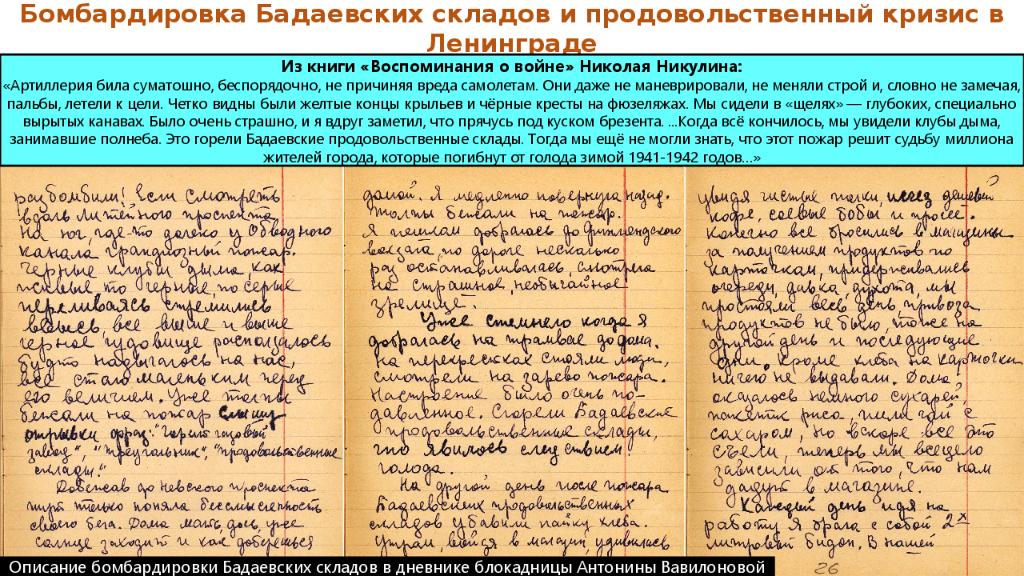 Бомбардировка Бадаевских складов и продовольственный кризис в
Ленинграде
Из книги «Воспоминания о войне» Николая Никулина:
«Артиллерия била суматошно, беспорядочно, не причиняя вреда самолетам. Они даже не маневрировали, не меняли строй и, словно не замечая,
пальбы, летели к цели. Четко видны были желтые концы крыльев и чёрные кресты на фюзеляжах. Мы сидели в «щелях» — глубоких, специально
вырытых канавах. Было очень страшно, и я вдруг заметил, что прячусь под куском брезента. ...Когда всё кончилось, мы увидели клубы дыма,
занимавшие полнеба. Это горели Бадаевские продовольственные склады. Тогда мы ещё не могли знать, что этот пожар решит судьбу миллиона
жителей города, которые погибнут от голода зимой 1941-1942 годов...»
разбомбили! Если смотреть
вдоль Литейного проспекта
на юг, где-то далеко у Обводного
канала грандиозный пожар.
Черные клубы дыма, как
живые то черные, то серые
переливаясь стремились
ввысь, все выше и выше
черное чудовище расползалось
будто надвигалось на нас,
все стало маленьким перед
его величием. Уже толпы
бежали на пожар слышу
отрывки фраз: "Горит газовый
завод", "Треугольник", "продовольственные
склады."
Добежав до Невского проспекта
тут только поняла бессмысленность
своего бега. Дома мать, дочь, уже
солнце заходит и как доберешься
домой. Я медленно повернула назад.
Толпы бежали на пожар.
Я пешком добралась до Финляндского
вокзала, по дороге несколько
раз останавливалась, смотрела
на страшное, необычайное
зрелище.
Уже стемнело когда я
добралась на трамвае до дома.
На перекрестках стояли люди,
смотрели на зарево пожара.
Настроение было очень по-
давленное. Сгорели Бадаевские
продовольственные склады,
что явилось следствием
голода.
На другой день после пожара
Бадаевских продовольственных
складов убавили пайку хлеба.
Утром, войдя в магазин, удивилась
увидя чистые полки, исчез дешевый
кофе, соевые бобы и просо.
Конечно все бросились в магазины
за получением продуктов по
карточкам, придерживались
очереди, давка, духота, мы
простояли весь день, привоза
продуктов не было, тоже на
другой день и последующие
дни. Кроме хлеба на карточки
ничего не выдавали. Дома
оказалось немного сухарей,
пакетик риса, пили чай с
сахаром, но вскоре все это
съели, теперь мы всецело
зависили от того, что нам
дадут в магазине.
Каждый день идя на
работу я брала с собой 2х
литровый бидон. В нашей
26
Описание бомбардировки Бадаевских складов в дневнике блокадницы Антонины Вавилоновой